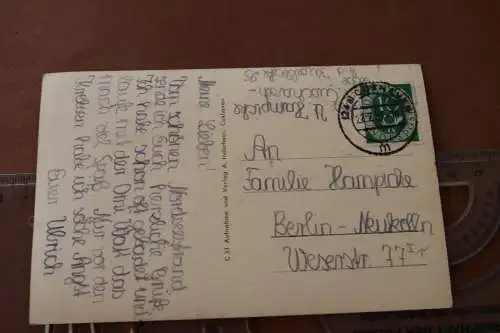 Meine Lieben!
Vom schönen Nordseestrand
sende ich Euch herzliche Grüße
Ich habe schon oft gebadet und
lauf mit der Omi Watt das
macht viel Spaß. Nur vor den
Krebsen habe ich solche Angst
Euer Ulrich
C 37 Aufnahme und Verlag A. Cuxhaven
U. Hampicke
Cuxhaven-
An
Familie Hampicke
Berlin-Neukölln
Weserstr. 77 I r
CUXHAVEN
m